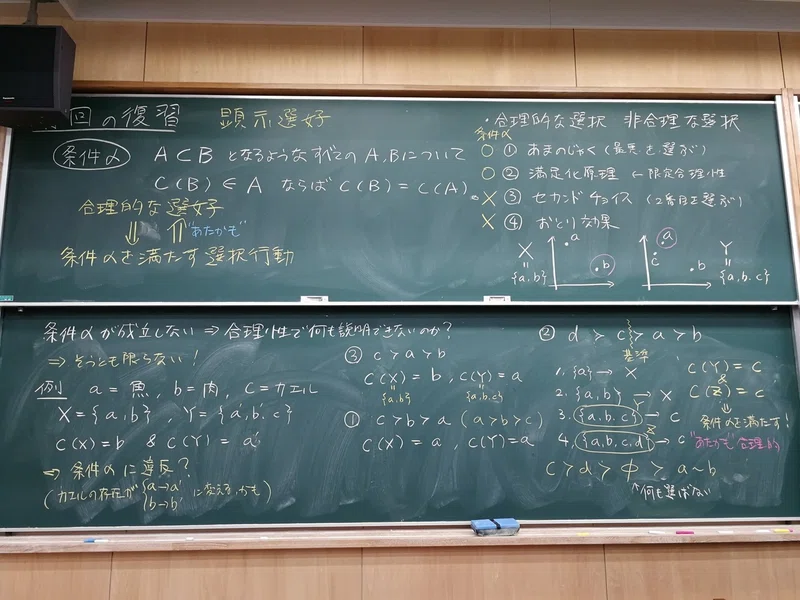 回の復習 顕示選好
条件α A⊂B となるようなすべての A,Bについて
C(B)∈A ならば C(B)=C(A)。
合理的な選好
⇓ ⇑ "あたかも"
条件αを満たす選択行動
・合理的な選択 非合理な選択
条件α
○ ① あまのじゃく(最悪を選ぶ)
○ ② 満足化原理 ← 限定合理性
× ③ セカンドチョイス (2番目を選ぶ)
× ④ おとり効果
X = {a,b} a b
a c b Y = {a,b,c}
条件αが成立しない ⇒ 合理性で何も説明できないのか?
⇒ そうとも限らない!
例 a=魚, b=肉, c=カエル
X={a,b}, Y={a',b',c}
C(X)=b & C(Y)=a'
⇒ 条件αに違反?
(カエルの存在が {a→a' b→b' に変える,かも)
③ c>a>b
C(X)=b, C(Y)=a
{a,b} {a,b,c}
① c>b>a (a>b>c)
C(X)=a, C(Y)=a
② d > c > a > b
基準
1. {a} → X
2. {a,b} → X
3. {a,b,c} → c
4. {a,b,c,d} → c
C(Y)=c
&
C(Z)=c
⇓
条件αを満たす!
"あたかも"合理的
c>d>φ>a~b
↑何も選ばない